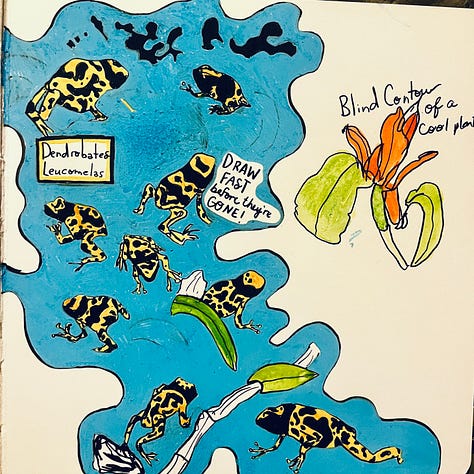 Dendrobates
Leucomelas
DRAW
FAST
before they're
GONE!
Blind Contour
of a
Cool plant